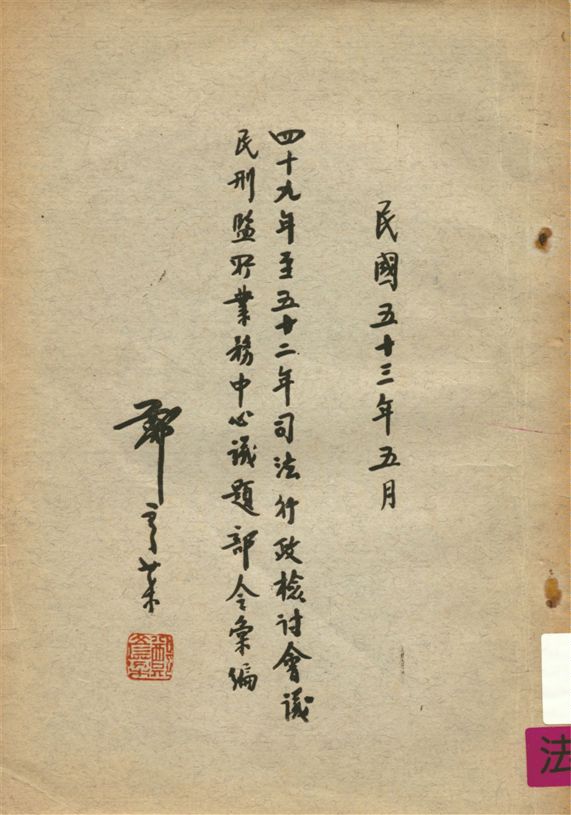 民國五十三年五月
四十九年至五十二年司法行政檢討會議
民刑監所業務中心議題部令彙編
鄭彥棻
法